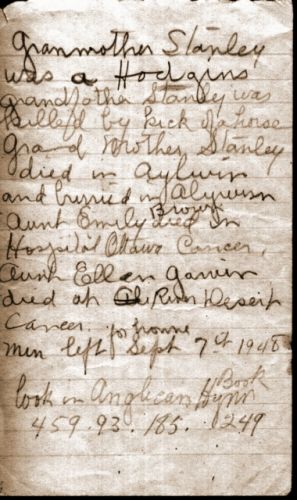 Granmother Stanley
was a Hodgins
grandfather Stanley was
killed by kick of a horse
Grand Mother Stanley
died in Aylwin
and burried in Alywin
Aunt Emily Brown died in
Hospital Ottawa Cancer,
Aunt Ellen Garvin
died at River Desert
Cancer.
men left for home Sept 7th 1948
look in Anglican Hymn Book
459. 93. 185. 249